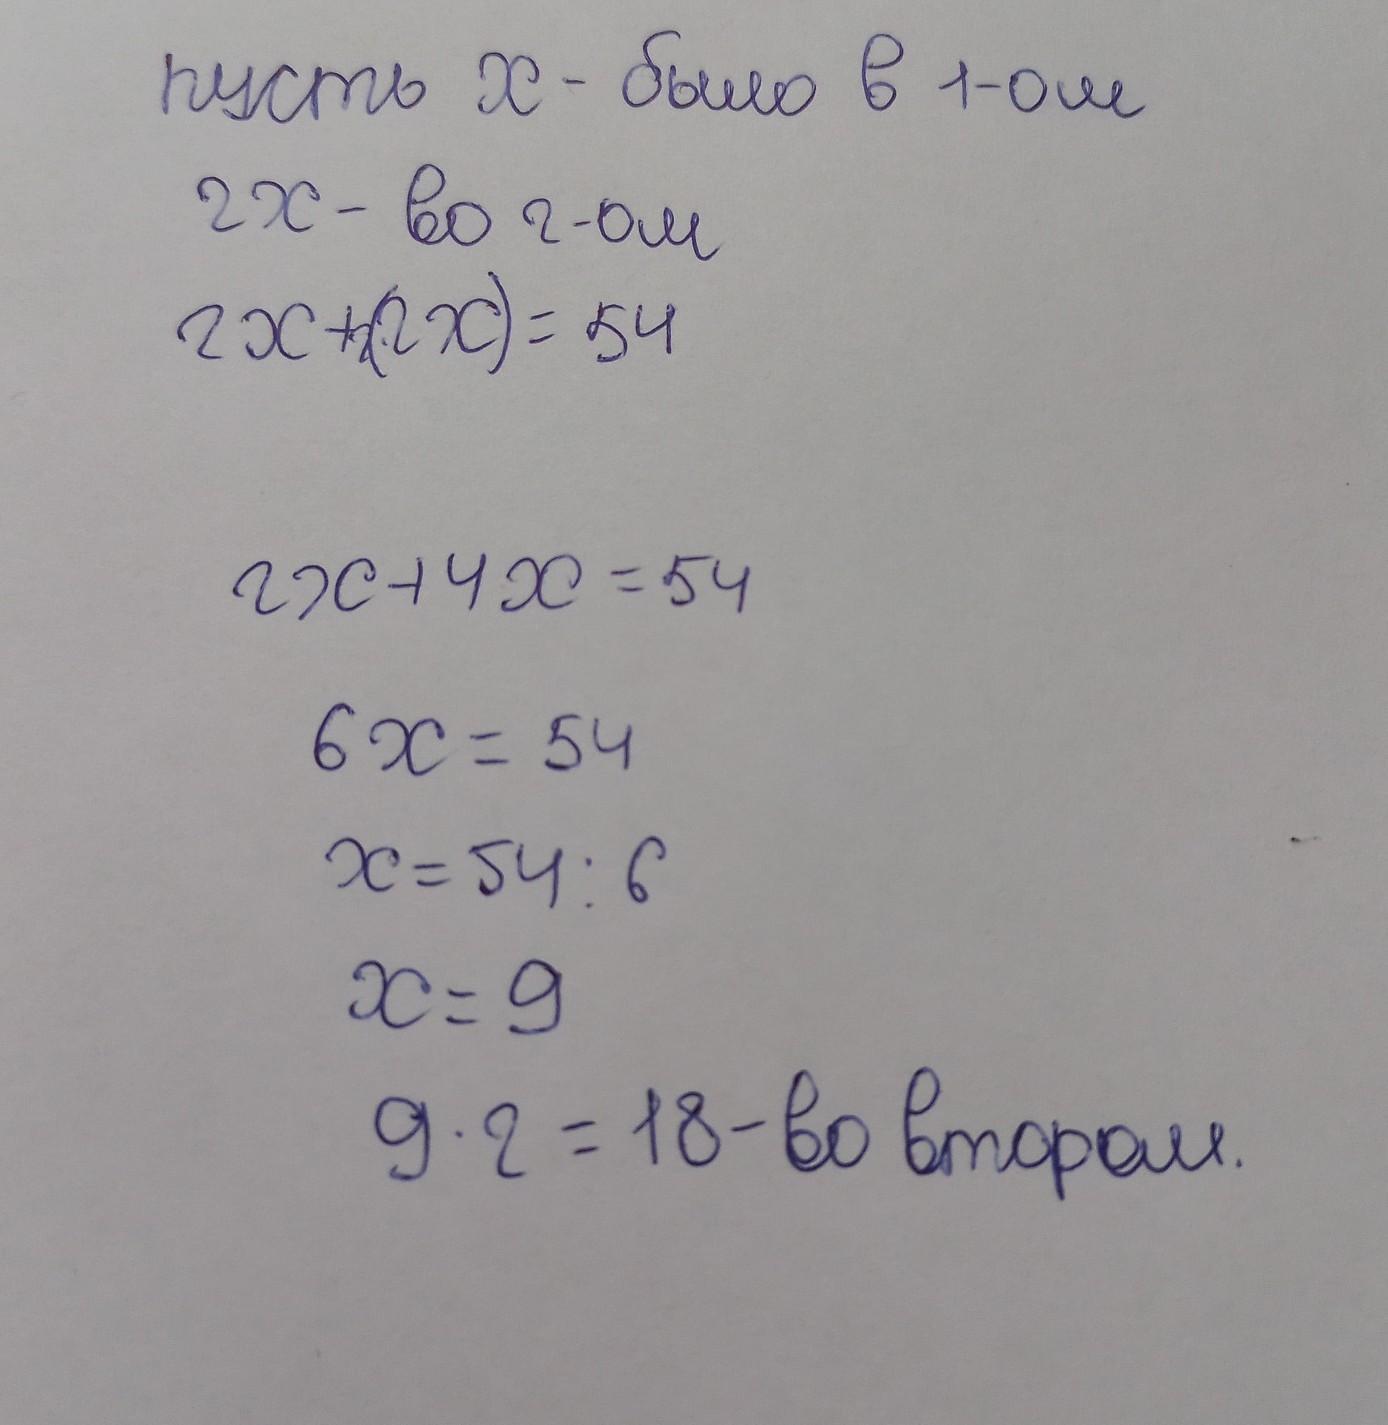 пусть x - было в 1-ом
2x - во 2-ом
2x+2(2x)=54
2x+4x=54
6x=54
x=54:6
x=9
9·2=18-во втором.